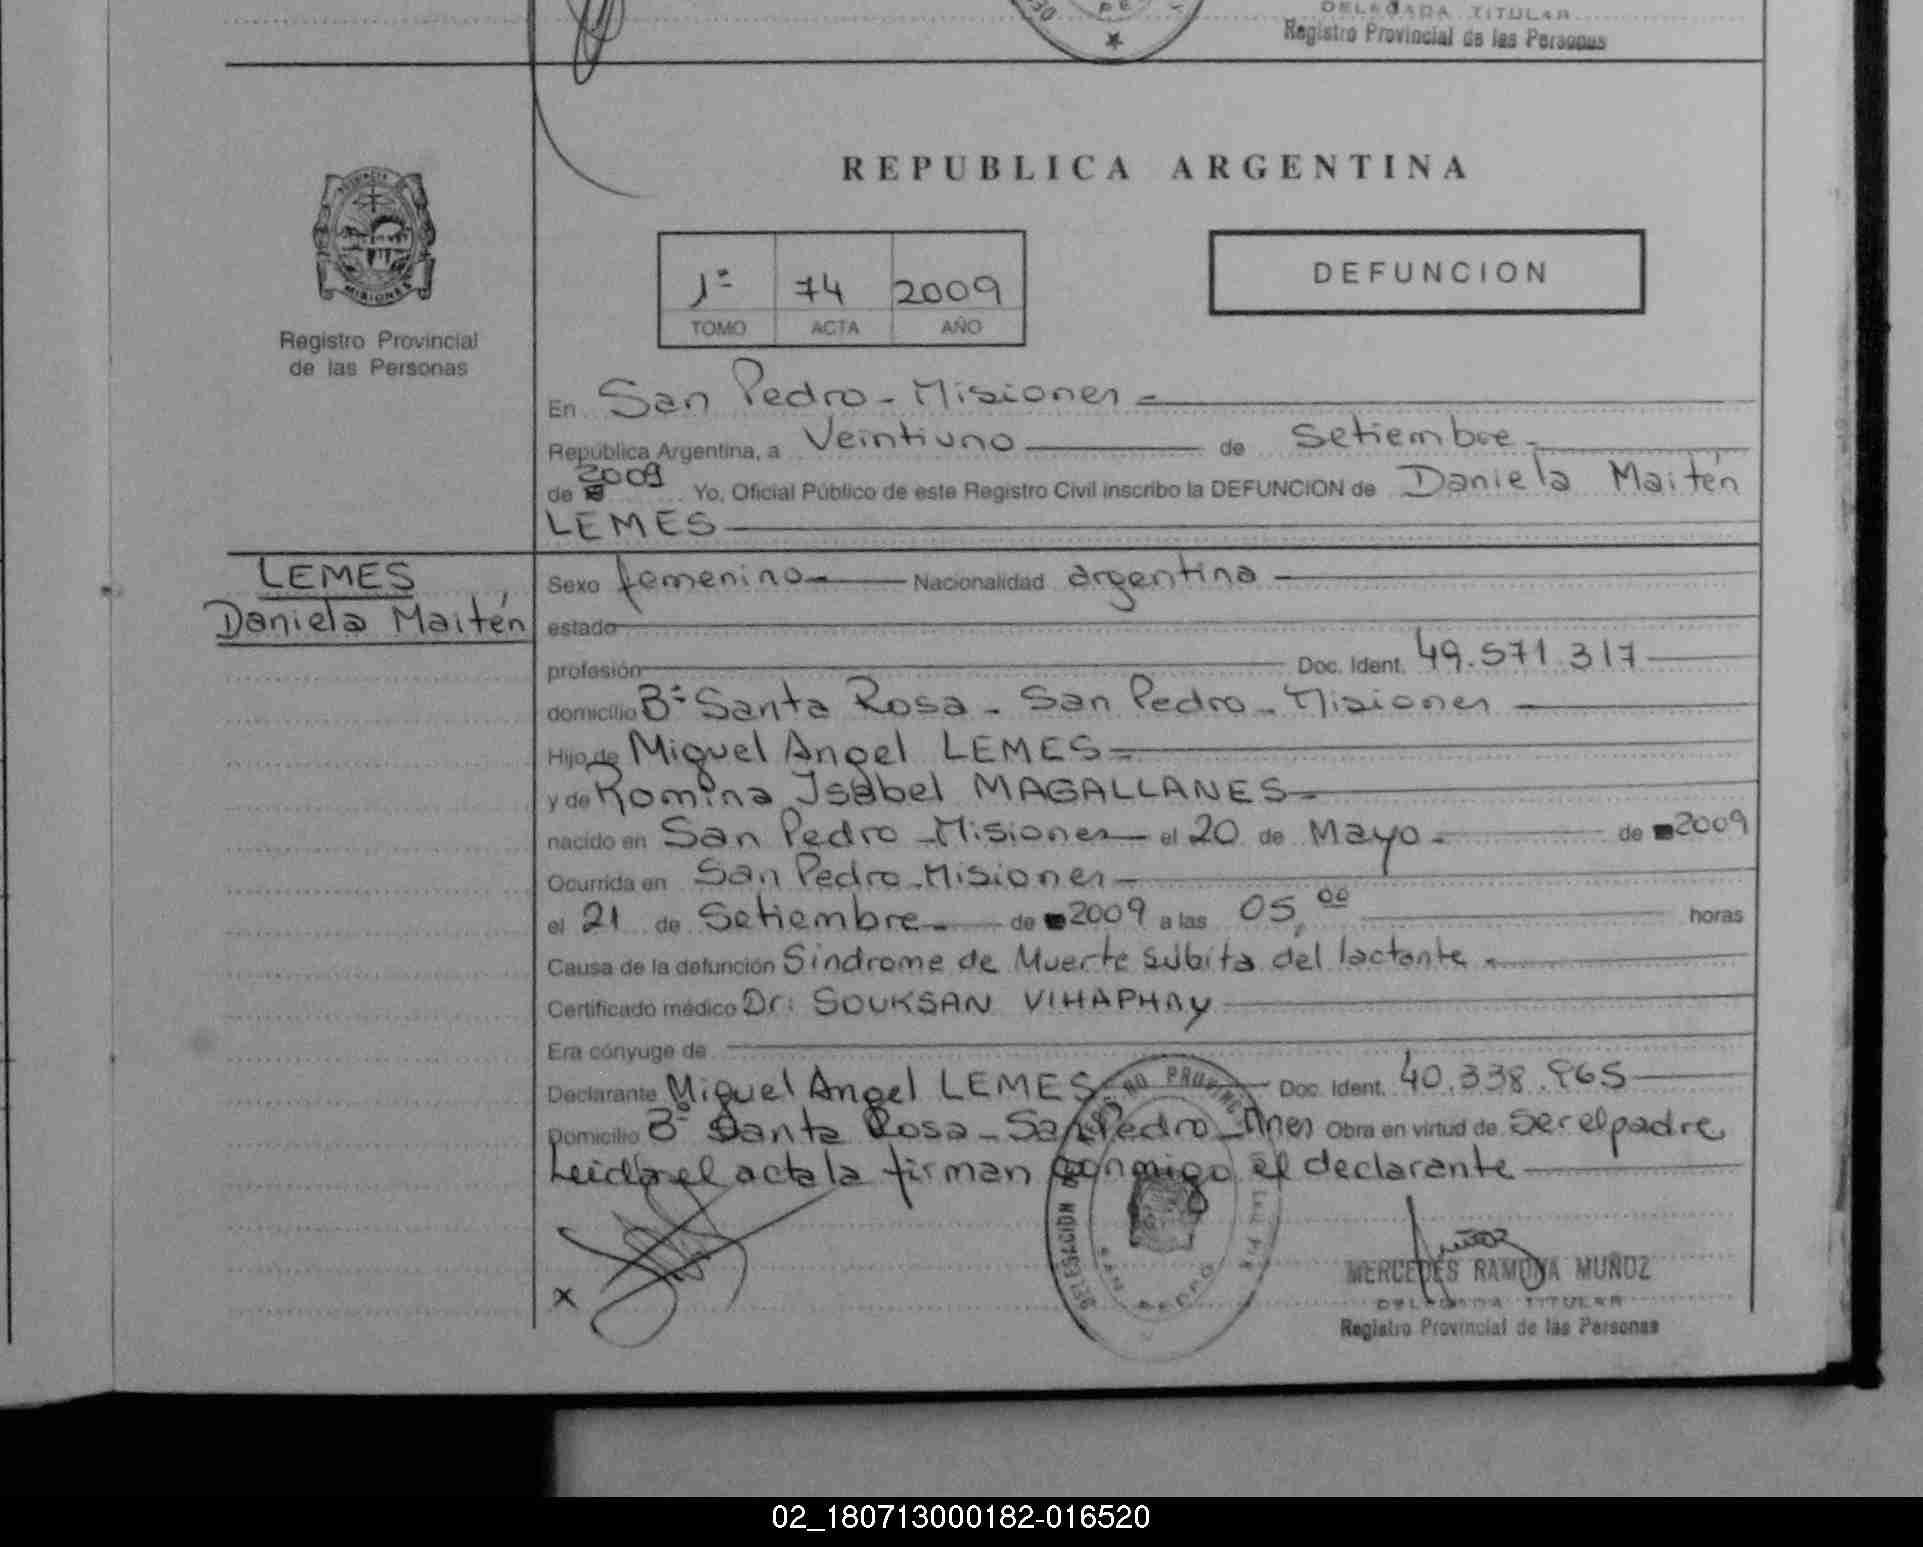 DELEGADA TITULAR
Registro Provincial de las Personas
REPUBLICA ARGENTINA
1º 74 2009
TOMO ACTA AÑO
DEFUNCION
MISIONES
Registro Provincial
de las Personas
En San Pedro - Misiones -
República Argentina, a Veintiuno de Setiembre -
de 2009 Yo, Oficial Público de este Registro Civil inscribo la DEFUNCION de Daniela Maitén
LEMES
LEMES
Daniela Maitén
Sexo femenino Nacionalidad argentina
estado
profesión Doc. Ident. 49.571.317
domicilio Bº Santa Rosa - San Pedro - Misiones
Hijo de Miguel Angel LEMES -
y de Romina Isabel MAGALLANES -
nacido en San Pedro - Misiones el 20 de Mayo - de 2009
Ocurrida en San Pedro - Misiones -
el 21 de Setiembre - de 2009 a las 05,00 horas
Causa de la defunción Síndrome de Muerte súbita del lactante -
Certificado médico Dr: SOUKSAN VIHAPHAY
Era cónyuge de
Declarante Miguel Angel LEMES Doc. Ident. 40.338.965
Domicilio Bº Santa Rosa - San Pedro - Mnes Obra en virtud de ser el padre
Leída el acta la firman conmigo el declarante
x
DELEGACION
SAN PEDRO
Muñoz
MERCEDES RAMONA MUÑOZ
DELEGADA TITULAR
Registro Provincial de las Personas
02_180713000182-016520